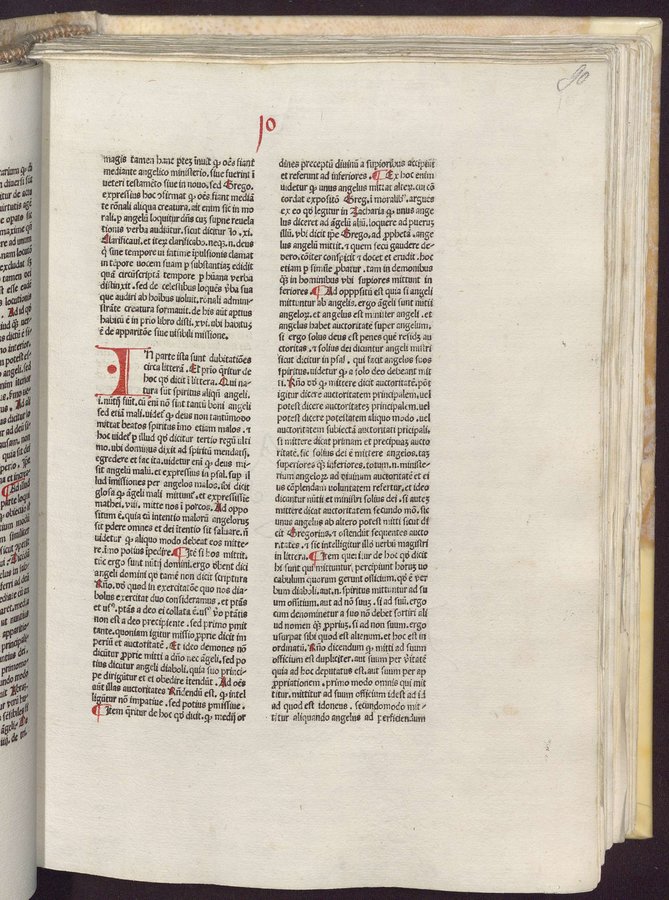 90
10
magis tamen hanc ptez̄ inuit ꝙ oēs fiant
mediante angelico ministerio, siue fuerint ī
ueteri testamēto siue in nouo. sed Grego.
expressius hoc ↄfirmat ꝙ oēs fiant mediā
te rōnali aliqua creatura, ait enim sic in mo
rali. ꝑ angelū loquitur dn̄s cuȝ supne reuela
tionis verba audiūtur. sicut dicitur Io. xi.
Clarificaui, et iteȝ clarificabo. neqꝫ. n. deus
q̄ sine tempore ui intime īpulsionis clamat
in tēpore uocem suam ꝑ substantiaȝ edidit
quā circūscriptā tempore ꝑ hūana verba
distinxit. sed de celestibus loquēs v̓ba sua
que audiri ab hoībus uoluit, rōnali admini
strāte creatura formauit. de his aūt aptius
habitū ē in prio libro disti. xvi. ubi habituȝ
ē de apparitōe siue uisibili missione.
IN parte ista sunt dubitatiōes
circa litterā. Et prio qr̄itur de
hoc qd̄ dicit ī littera. Qui na
tura sūt spiritus aliqn̄ angeli.
i. nutij sūt. cū eni nō sint tantū boni angeli
sed etiā mali. uidet̄ ꝙ deus non tantūmodo
mittat beatos spiritus imo etiam malos. ⁊
hoc uidet̄ ꝑ illud qd̄ dicitur tertio regū ulti
mo. ubi dominus dixit ad spiritū mendatij.
egredere et fac ita. uidetur eni ꝙ deus mi-
sit angelū malū. et expressius in psal. sup il
lud imissiones per angelos malos. ibi dicit
glosa ꝙ āgeli mali mittunt̄. et expressissīe
mathei. viii. mitte nos ī porcos. Ad oppo
situm ē. quia cū intentio malorū angeloruȝ
sit ꝑdere omnes et dei itentio sit saluare. n̄
uidetur ꝙ aliquo modo debeat eos mitte-
re. īmo potius īpedire. ¶Itē si hos mittit.
tūc ergo sunt nūtij domini. ergo ōbent dici
angeli domini qd̄ tamē non dicit scriptura
Rn̄o. vō quod in exercitatōe quo nos dia-
bolus exercitat duo consideramus. et ptās
et us⁹. ptās a deo ei collata ē. us⁹ v̓o ptātis
non est a deo precipiente. sed primo pmit
tante. quoniam igitur missio ꝓprie dicit im
periū et auctoritatē. Et ideo demones nō
dicūtur ꝓprie mitti a dn̄o nec āgeli. sed po
tius dicuntur angeli diaboli. quia suo princi-
pe dirigūtur et ei obedire itendūt. Ad oēs
aūt illas auctoritates Rn̄dendū est. ꝙ intel
ligūtur nō impatiue. sed potius pmissiue.
¶Item qr̄itur de hoc qd̄ dicit. ꝙ medij or
dines preceptū diuinū a supioribus accipiūt
et referunt ad inferiores. ¶Ex hoc enim
uidetur ꝙ unus angelus mittat alteȝ. cui cō
cordat expositō Greg. ī moralib⁹. argues
ex eo qd̄ legitur in Zacharia ꝙ unus ange
lus diceret ad āgelū aliū. loquere ad pueruȝ
illū. vbi dicit ipē Grego. ad ꝓphetā. ange
lus angelū mittit. ⁊ quem secū gaudere de-
o vero. cōiter conspicit ⁊ docet et erudit. hoc
etiam ꝑ simile ꝓbatur. tam in demonibus
qȝ in hominibus vbi supiores mittunt in
feriores. ¶Ad oppositū est quia si angeli
mittuntur ab angelis. ergo āgeli sunt nūtij
angeloȝ. et angelus est minister angeli. et
angelus habet auctoritatē super angelum.
si ergo solus deus est penes quē residȝ au
ctoritas. ⁊ solius dei dicuntur angeli nistri
sicut dicitur in psal. qui facit angelos suos
spiritus. uidetur ꝙ a solo deo debeant mit
ti. Rn̄o vō ꝙ mittere dicit auctoritatē. pōt
igitur dicere auctoritatem principalem. uel
potest dicere auctoritateȝ principalem. uel
potest dicere potestatem aliquo modo. uel
auctoritatem subiectā auctoritati pricipali.
si mittere dicat primam et precipuaȝ aucto
ritatē. sic solius dei ē mittere angelos. taȝ
superiores qȝ inferiores. totum. n. ministe-
rium angeloȝ ad diuinam auctoritatē et ei
us cōplendam uoluntatem refertur. et ideo
dicuntur nūtij et ministri solius dei. si auteȝ
mittere dicat auctoritatem secundo mō. sic
unus angelus ab altero potest mitti sicut di
cit Gregorius. ⁊ ostendūt sequentes aucto
ritates. ⁊ sic intelligitur illō verbū magistri
in littera. ¶Item queritur de hoc qd̄ dicit
hi sunt qui mittuntur, percipiunt horuȝ uo
cabulum quorum gerunt officium. qd̄ ē ver
bum diaboli. aut. n. spiritus mittuntur ad su
um offitium. aut ad nō suuȝ. si ad suū. ergo
cum denominetur a suo nō debet sortiri ali
ud nomen qȝ ꝓprius. si ad non suum. ergo
usurpat sibi quod est alienum. et hoc est in
ordinatū. Rn̄o dicendum ꝙ mitti ad suum
officium est dupliciter. aut suum per v̓itatē
quia ad hoc deputatus est. aut suum per ap
ꝓpriationem. primo modo omnis qui mit
titur. mittitur ad suum officium idest ad id
ad quod est idoneus. secundo modo mit-
titur aliquando angelus ad perficiendum